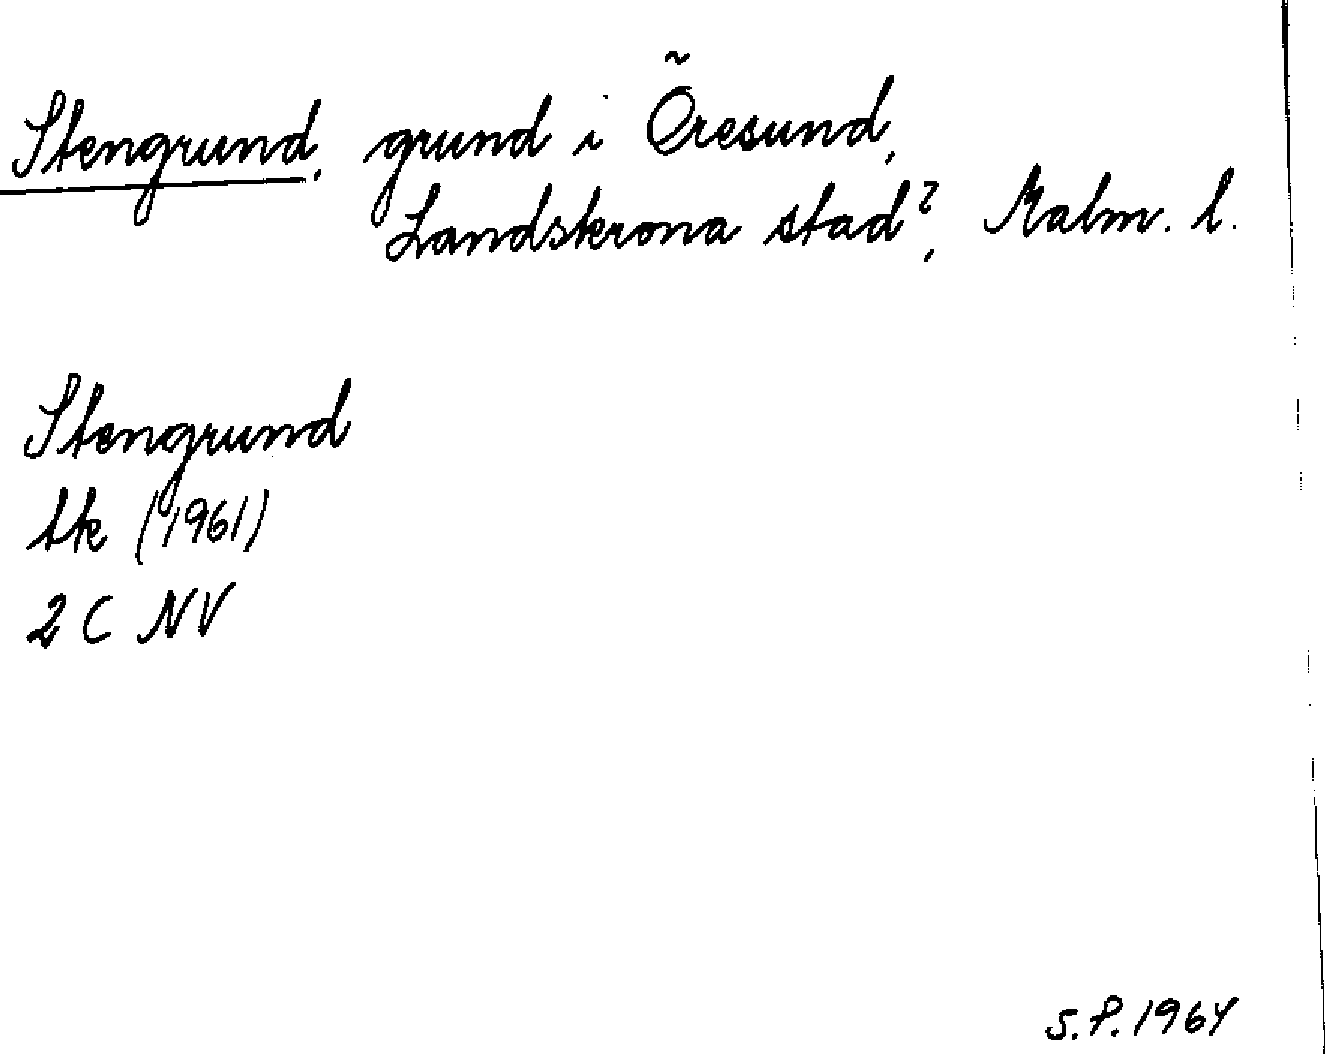 Stengrund, grund i Öresund,
Landskrona stad?, Malm. l.
Stengrund
tk (1961)
2 C NV
S.P. 1964